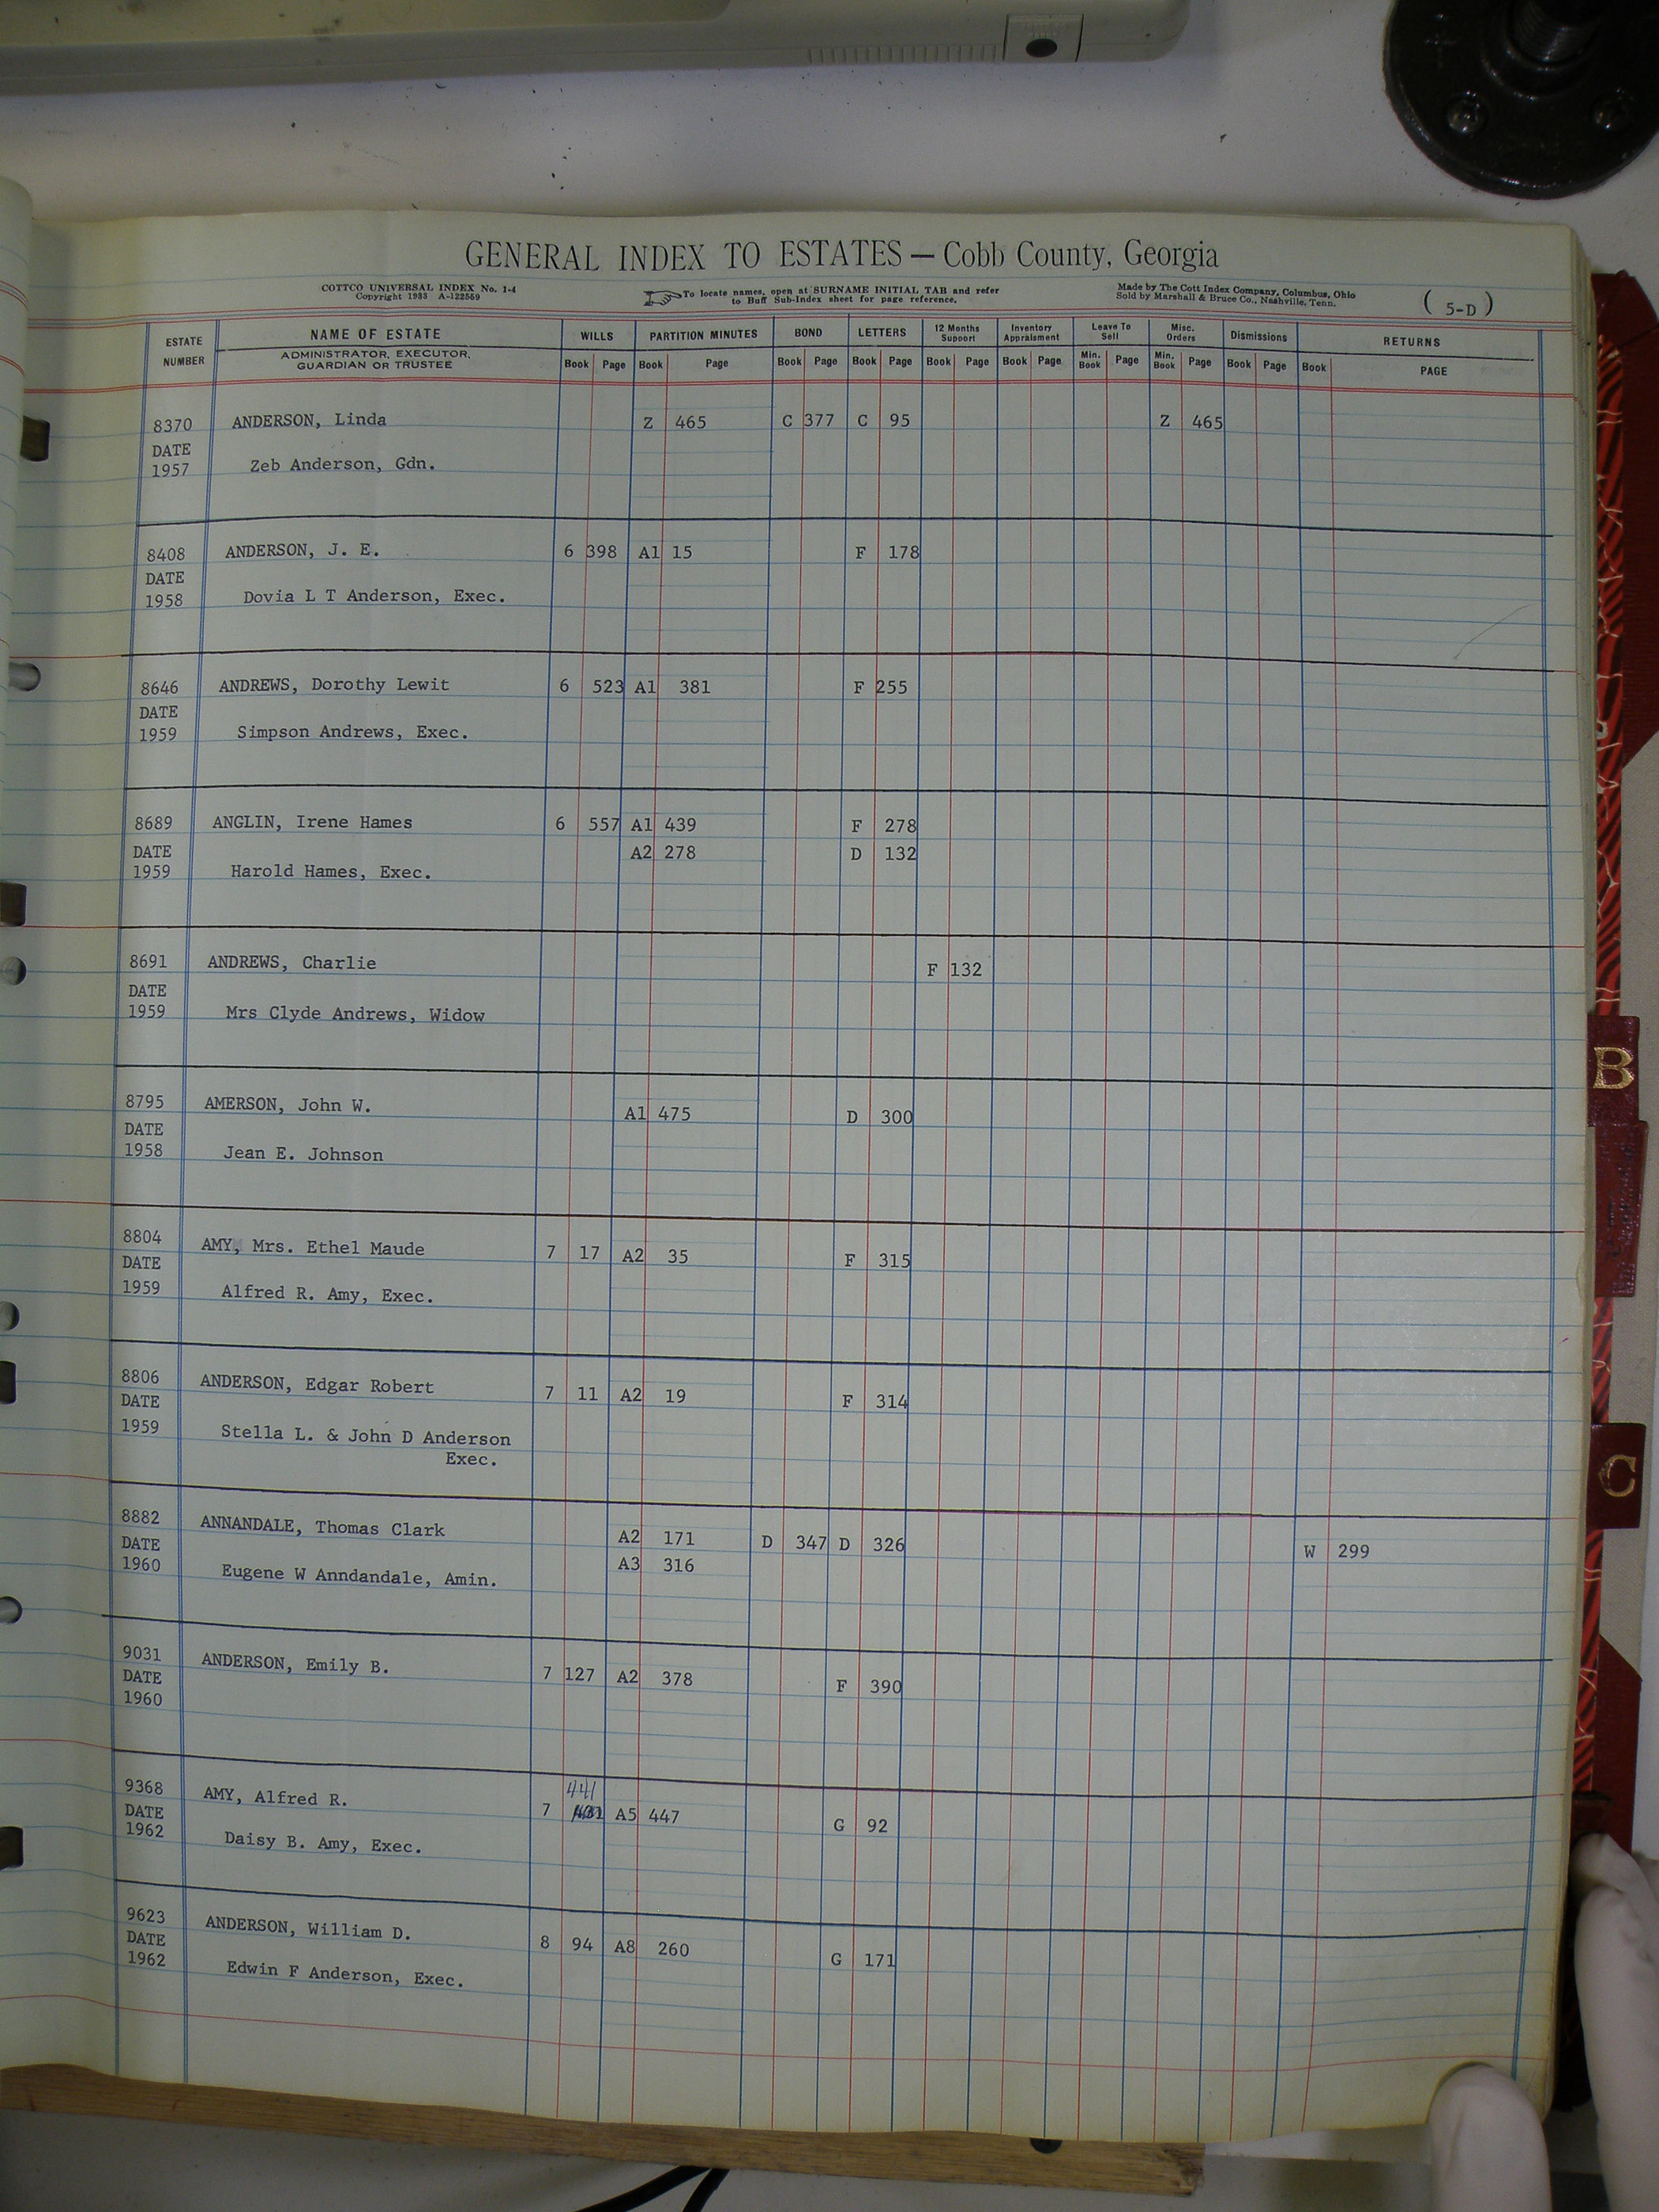 GENERAL INDEX TO ESTATES — Cobb County, Georgia
COTTCO UNIVERSAL INDEX No. 1-4
Copyright 1933 A-122569
To locate names, open at SURNAME INITIAL TAB and refer
to Buff Sub-Index sheet for page reference.
Made by The Cott Index Company, Columbus, Ohio
Sold by Marshall & Bruce Co., Nashville, Tenn.
( 5-D )
ESTATE NUMBER NAME OF ESTATE WILLS PARTITION MINUTES BOND LETTERS 12 Months Support Inventory Appraisment Leave To Sell Misc. Orders Dismissions RETURNS
ADMINISTRATOR, EXECUTOR, GUARDIAN OR TRUSTEE Book Page Book Page Book Page Book Page Book Page Book Page Min. Book Page Min. Book Page Book Page Book PAGE
8370 ANDERSON, Linda Z 465 C 377 C 95 Z 465
DATE
1957 Zeb Anderson, Gdn.
8408 ANDERSON, J. E. 6 398 A1 15 F 178
DATE
1958 Dovia L T Anderson, Exec.
8646 ANDREWS, Dorothy Lewit 6 523 A1 381 F 255
DATE
1959 Simpson Andrews, Exec.
8689 ANGLIN, Irene Hames 6 557 A1 439 F 278
DATE A2 278 D 132
1959 Harold Hames, Exec.
8691 ANDREWS, Charlie F 132
DATE
1959 Mrs Clyde Andrews, Widow
8795 AMERSON, John W. A1 475 D 300
DATE
1958 Jean E. Johnson
8804 AMY, Mrs. Ethel Maude 7 17 A2 35 F 315
DATE
1959 Alfred R. Amy, Exec.
8806 ANDERSON, Edgar Robert 7 11 A2 19 F 314
DATE
1959 Stella L. & John D Anderson
Exec.
8882 ANNANDALE, Thomas Clark A2 171 D 347 D 326 W 299
DATE A3 316
1960 Eugene W Anndandale, Amin.
9031 ANDERSON, Emily B. 7 127 A2 378 F 390
DATE
1960
9368 AMY, Alfred R. 441
DATE 7 A5 447 G 92
1962 Daisy B. Amy, Exec.
9623 ANDERSON, William D. 8 94 A8 260 G 171
DATE
1962 Edwin F Anderson, Exec.
B
C